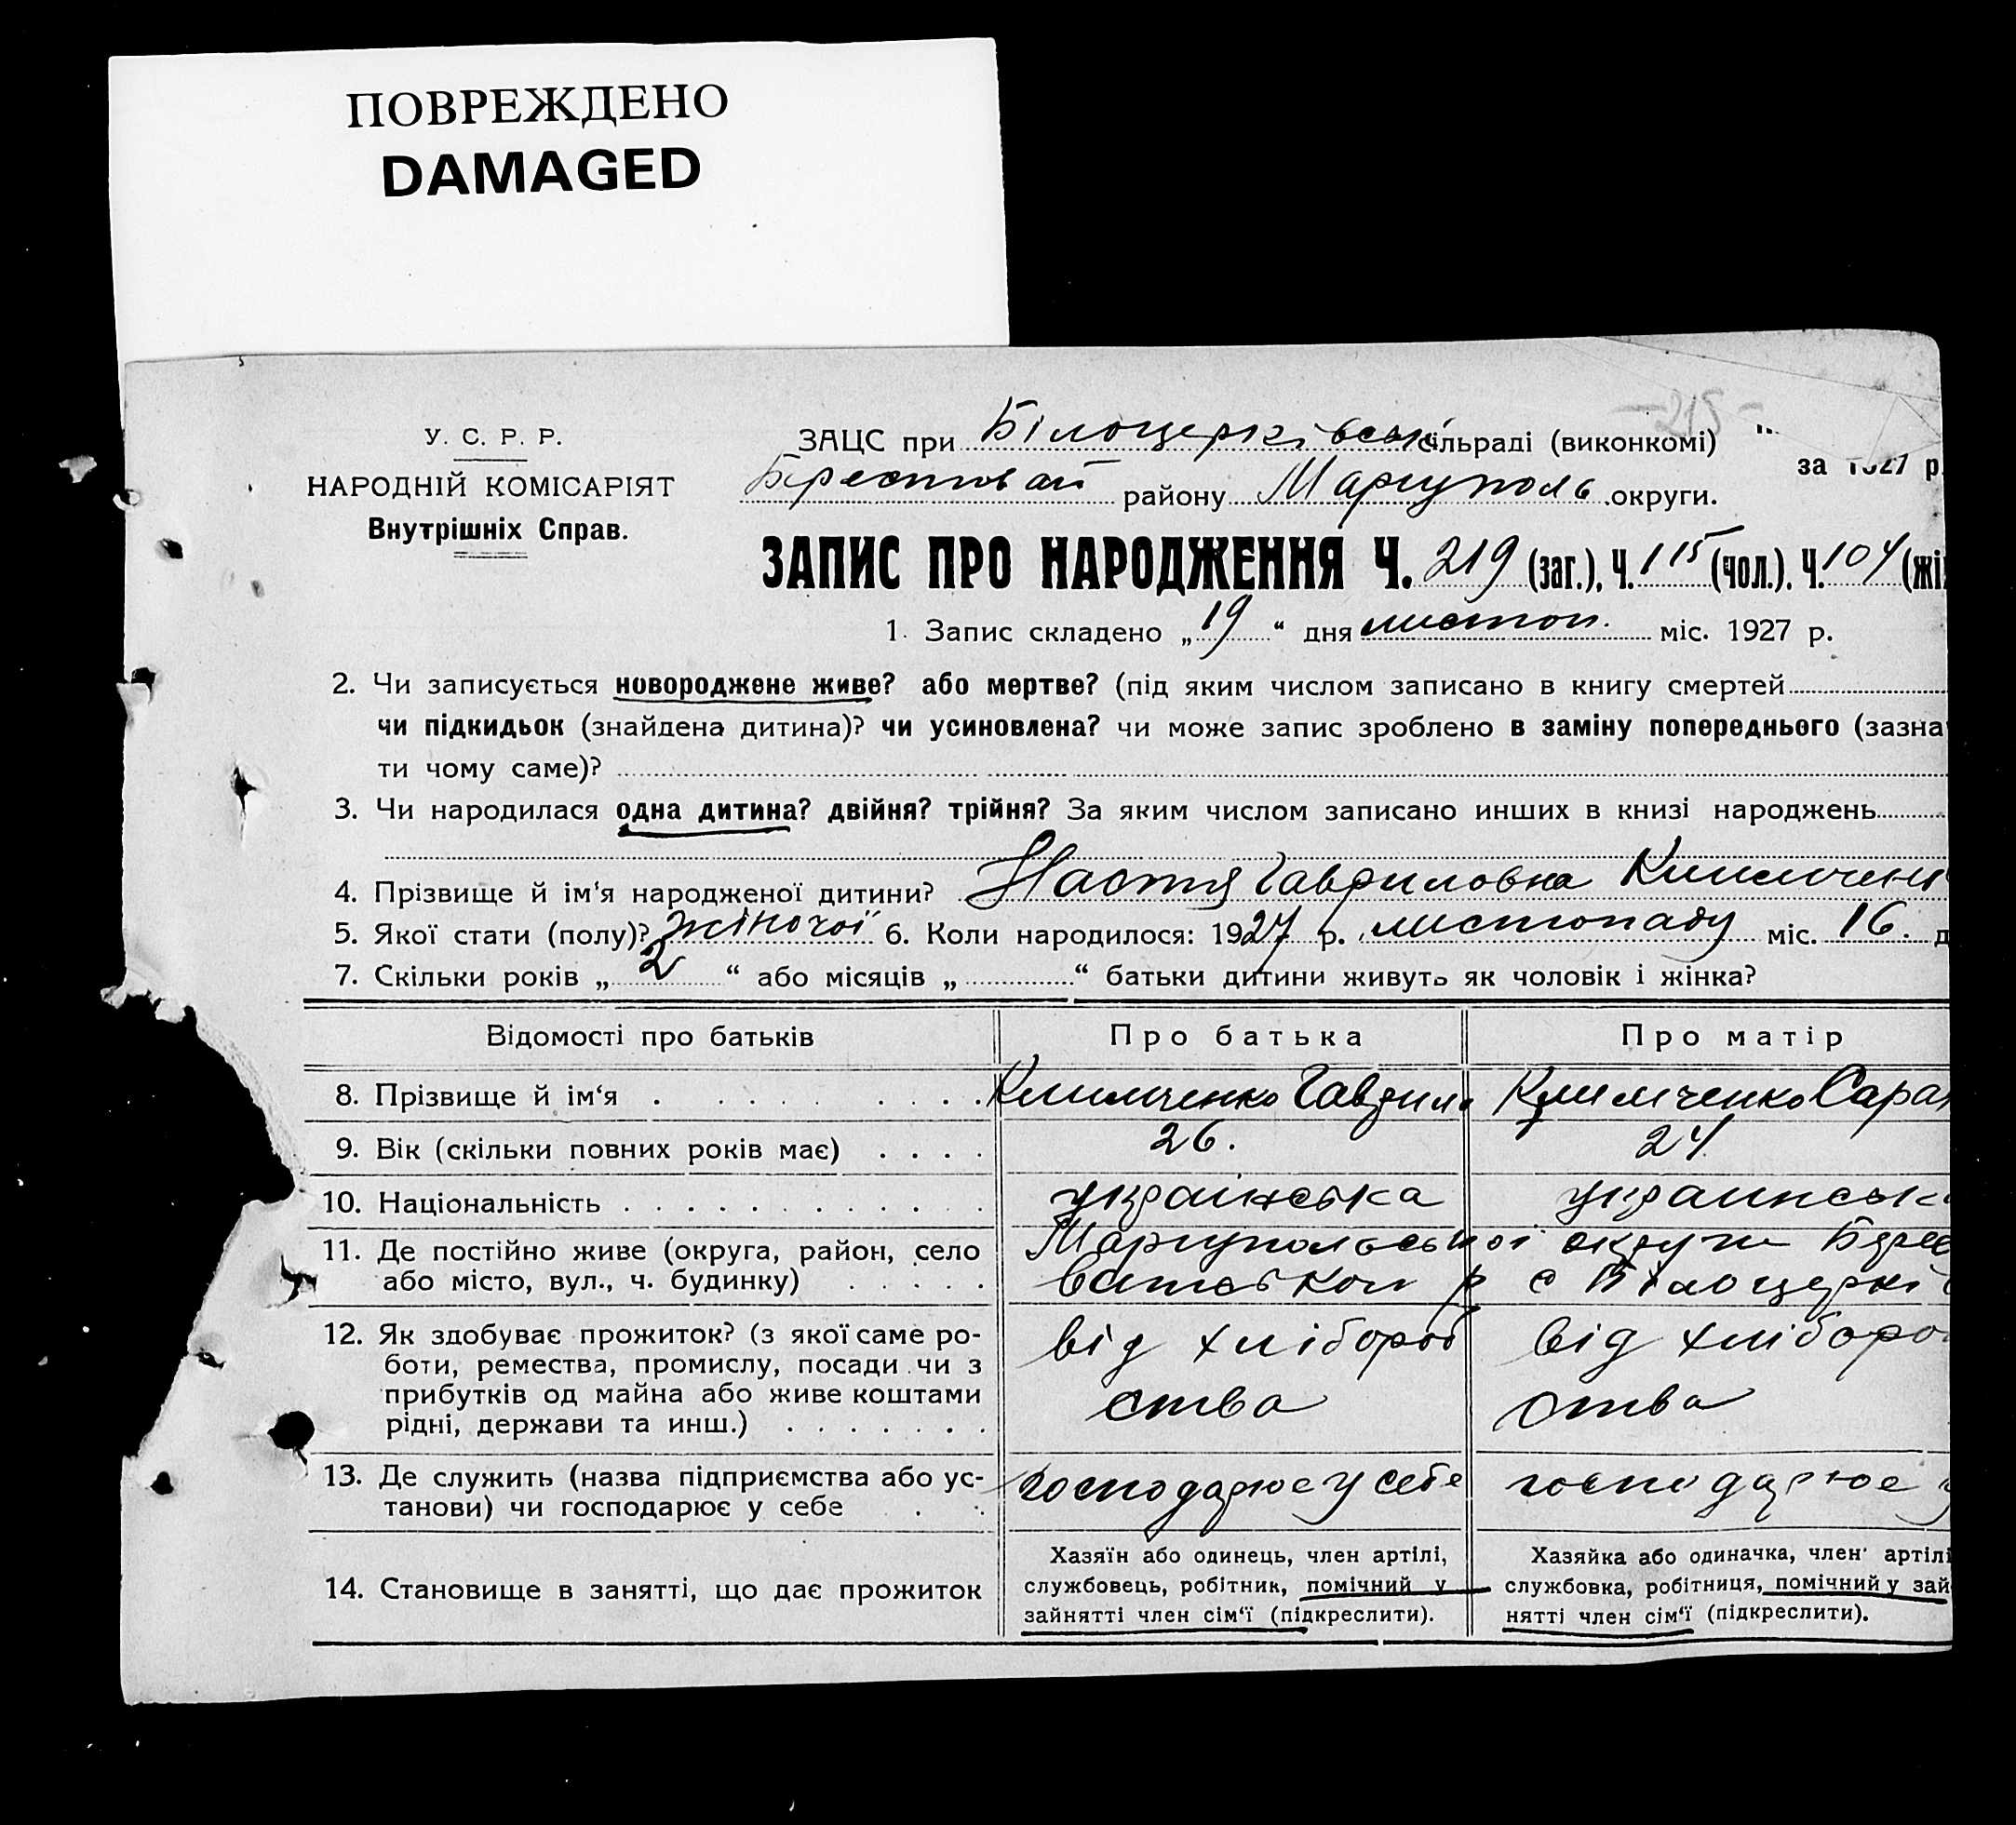 ПОВРЕЖДЕНО
DAMAGED
-215-
У. С. Р. Р.
НАРОДНІЙ КОМІСАРІЯТ
Внутрішніх Справ.
ЗАЦС при Білоцерківській сільраді (виконкомі)
за 1927 р.
району Маріуполь округи.
ЗАПИС ПРО НАРОДЖЕННЯ Ч. 219 (заг.), Ч. 115 (чол.). Ч. 104 (жі
1. Запис складено „ 19 “ дня листоп. міс. 1927 р.
2. Чи записується новороджене живе? або мертве? (під яким числом записано в книгу смертей
чи підкидьок (знайдена дитина)? чи усиновлена? чи може запис зроблено в заміну попереднього (зазна
ти чому саме)?
3. Чи народилася одна дитина? двійня? трійня? За яким числом записано инших в книзі народжень
4. Прізвище й ім‘я народженої дитини? Настя Гавриловна Климчен
5. Якої стати (полу)? жіночої 6. Коли народилося: 1927 р. листопаду міс. 16. д
7. Скільки років „ 2 “ або місяців „ “ батьки дитини живуть як чоловік і жінка?
Відомості про батьків Про батька Про матір
8. Прізвище й ім‘я Климченко Гаврило Климченко Сара
9. Вік (скільки повних років має) 26. 24
10. Національність українська украинська
11. Де постійно живе (округа, район, село Мариупольської округи
або місто, вул., ч. будинку) р с Білоцеркі
12. Як здобуває прожиток? (з якої саме ро- від хлібороб від хліборо
боти, ремества, промислу, посади чи з
прибутків од майна або живе коштами ства ства
рідні, держави та инш.)
13. Де служить (назва підприємства або ус- господарює у себе господарює у
танови) чи господарює у себе
14. Становище в занятті, що дає прожиток
Хазяїн або одинець, член артілі,
службовець, робітник, помічний у
зайнятті член сім‘ї (підкреслити).
Хазяйка або одиначка, член артілі
службовка, робітниця, помічний у зай
нятті член сім‘ї (підкреслити).